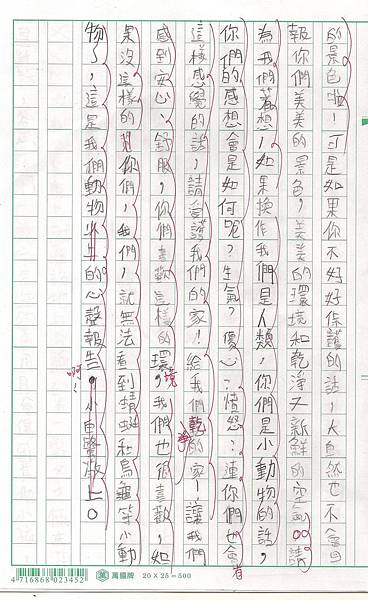 的景色啦!可是如果你不好好保護的話,大自然也不會回
報你們美美的景色,美美的環境和乾淨又新鮮的空氣。請
為我們著想,如果換作我們是人類,你們是小動物的話,
你們的感想會是如何呢?生氣?心?憤怒?連你們也會有
這樣感覺的話,請愛護我們的家!給我們乾淨的家!讓我們
感到安心、舒服,你們喜歡這樣的環境,我們也很喜歡,如
果沒這樣的你們,我們,就無法看到蜻蜓和烏龜等小動
物了,這是我們動物的心聲報告。小白鷺敬上。
啊!
4 716868 023452
萬國牌 20 X 25 = 500